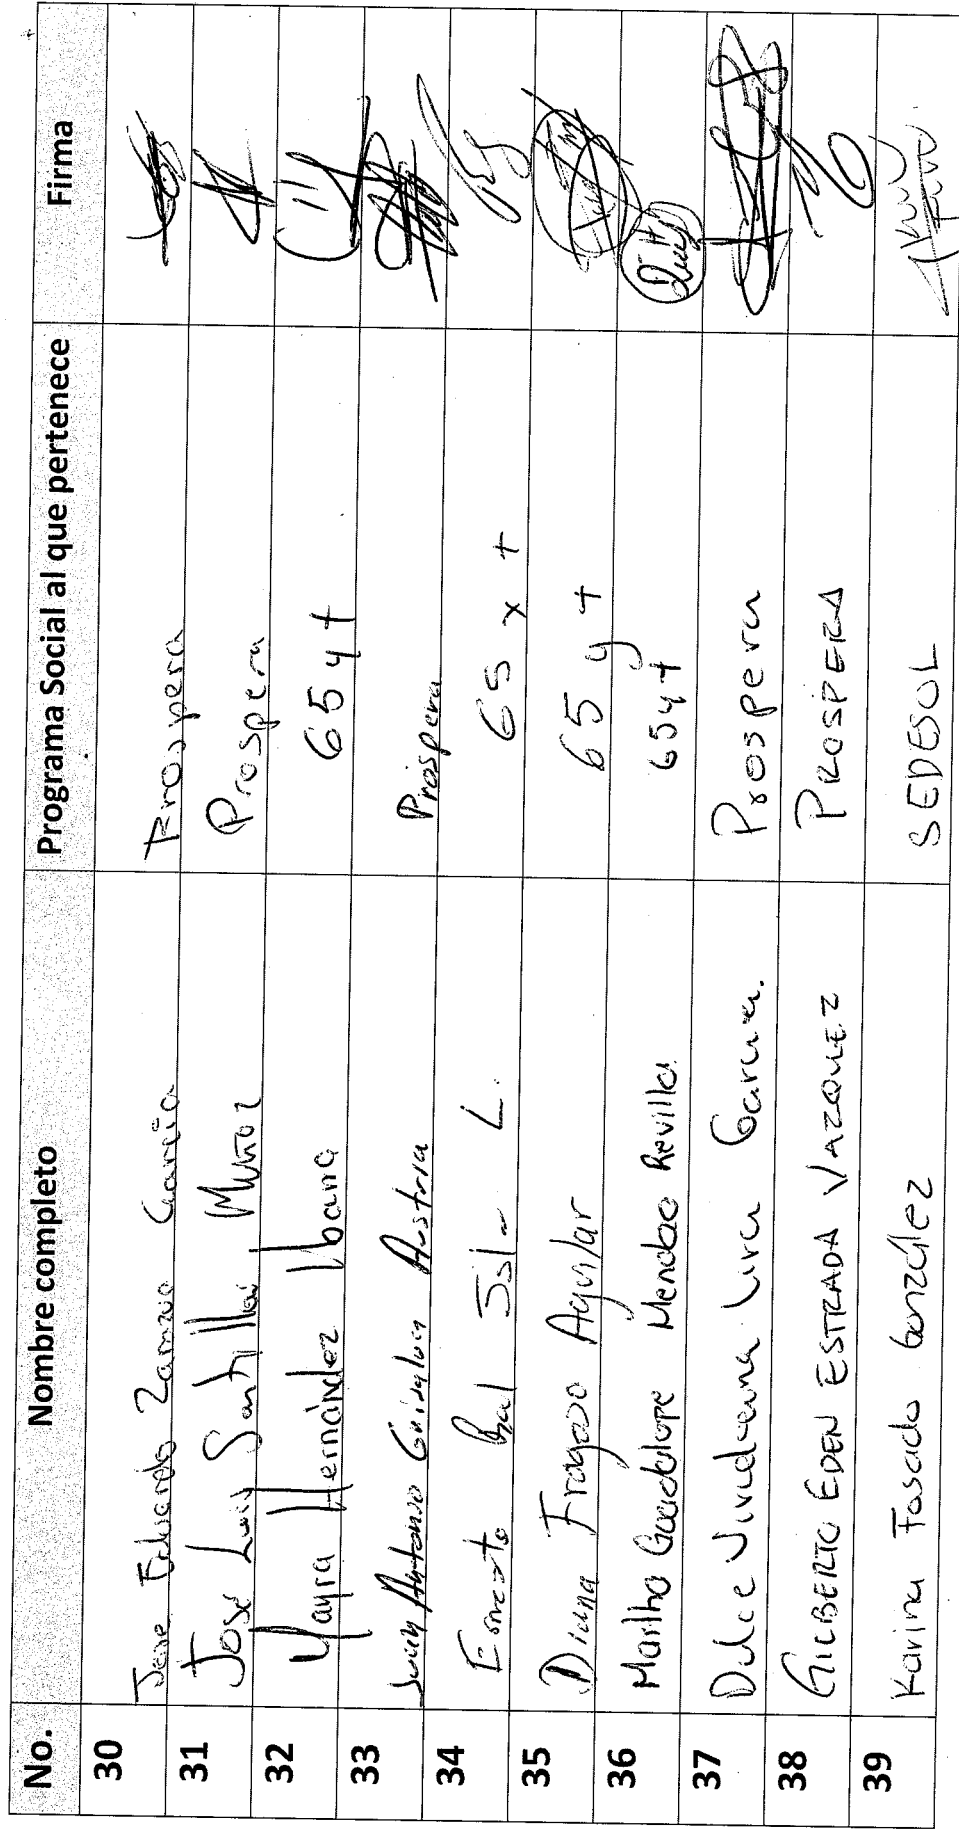 No. Nombre completo Programa Social al que pertenece Firma
30 Eduardo García Prospera
31 Jose Luis Santillan Muñoz Prospera
32 Mayra Hernández Ibarra 65 y +
33 Juan Antonio Austria Prospera
34 Ernesto L. 65 x +
35 Diana Fragoso Aguilar 65 y +
36 Martha Guadalupe Mendoza Revilla 65 y +
37 Dulce Viridiana Lira Garcia. Prospera
38 GILBERTO EDEN ESTRADA VAZQUEZ PROSPERA
39 Karina Posada González SEDESOL